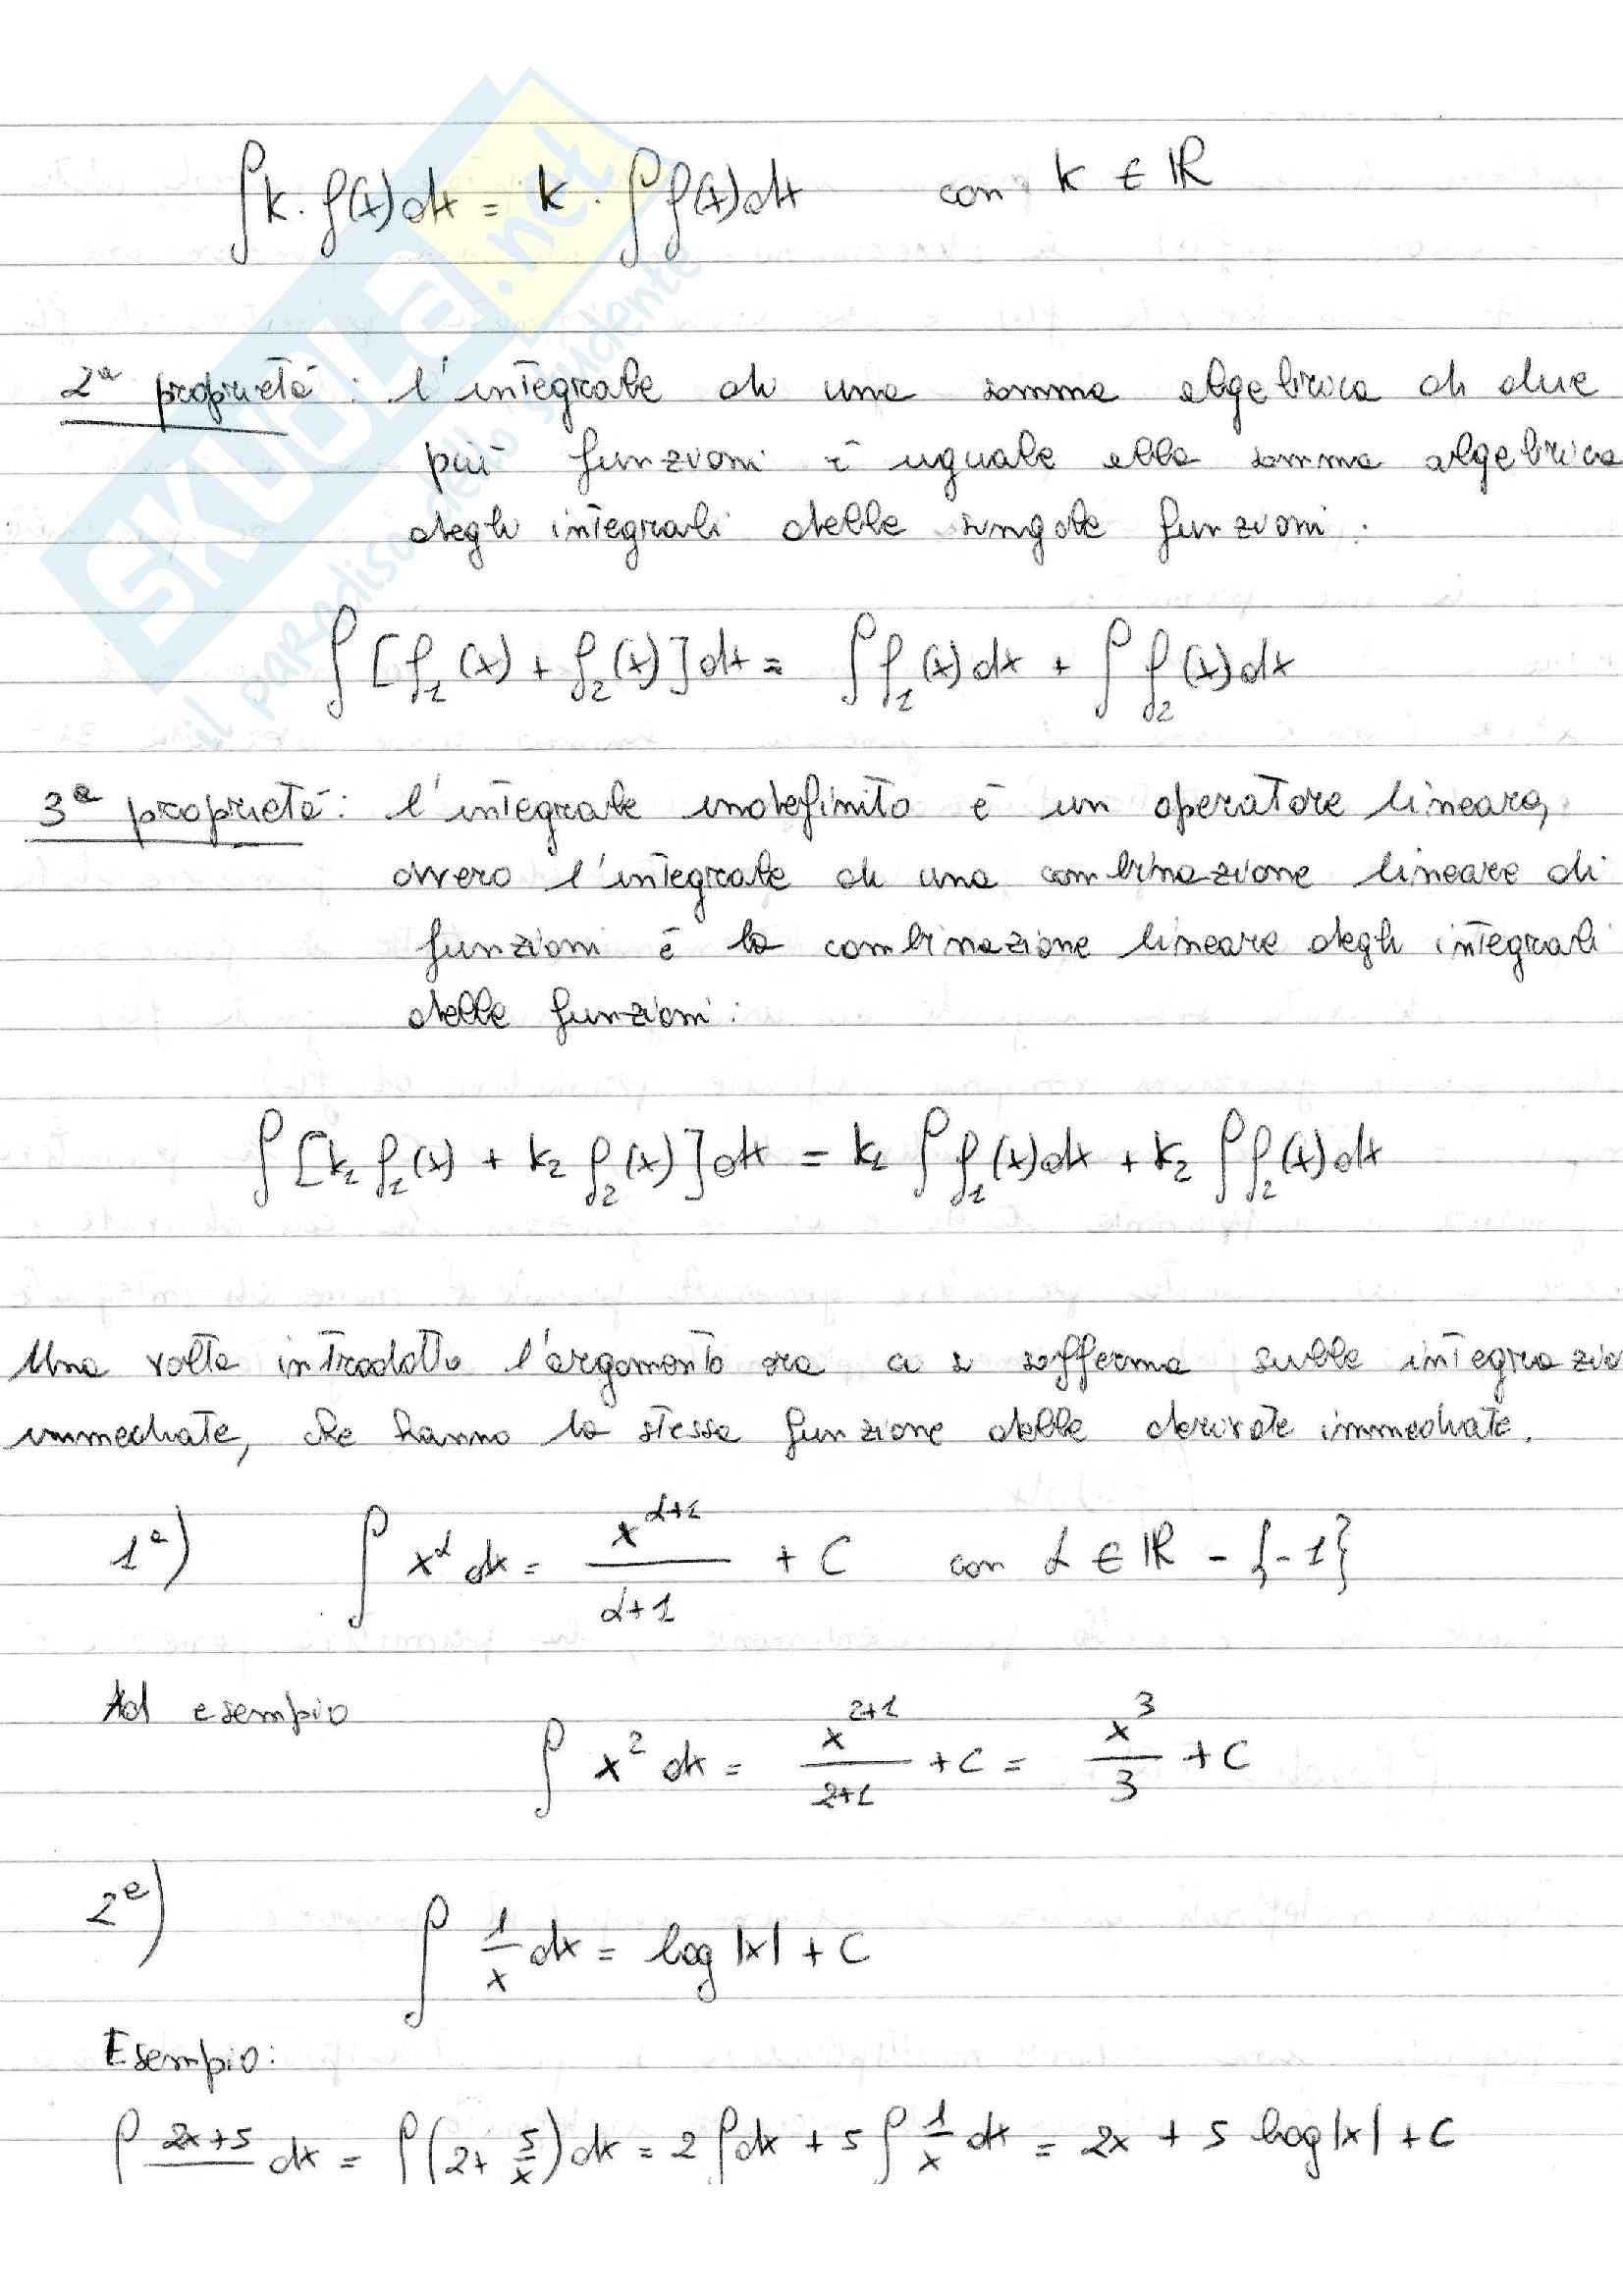 ∫k·f(x)dx = k·∫f(x)dx con k ∈ ℝ
2ª proprietà: l'integrale di una somma algebrica di due
più funzioni è uguale alla somma algebrica
degli integrali delle singole funzioni.
∫[f₁(x) + f₂(x)]dx = ∫f₁(x)dx + ∫f₂(x)dx
3ª proprietà: l'integrale indefinito è un operatore lineare,
ovvero l'integrale di una combinazione lineare di
funzioni è la combinazione lineare degli integrali
delle funzioni:
∫[k₁f₁(x) + k₂f₂(x)]dx = k₁∫f₁(x)dx + k₂∫f₂(x)dx
Una volta introdotto l'argomento ora ci si sofferma sulle integrazio
immediate, che hanno la stessa funzione delle derivate immediate.
1ª) ∫x^α dx = x^(α+1)/(α+1) + C con α ∈ ℝ - {-1}
Ad esempio
∫x² dx = x^(2+1)/(2+1) + C = x³/3 + C
2ª)
∫ 1/x dx = log|x| + C
Esempio:
∫ (2x+5)/ dx = ∫(2+ 5/x)dx = 2∫dx + 5∫ 1/x dx = 2x + 5 log|x| + C
SKUOLA.net
il paradiso dello studente